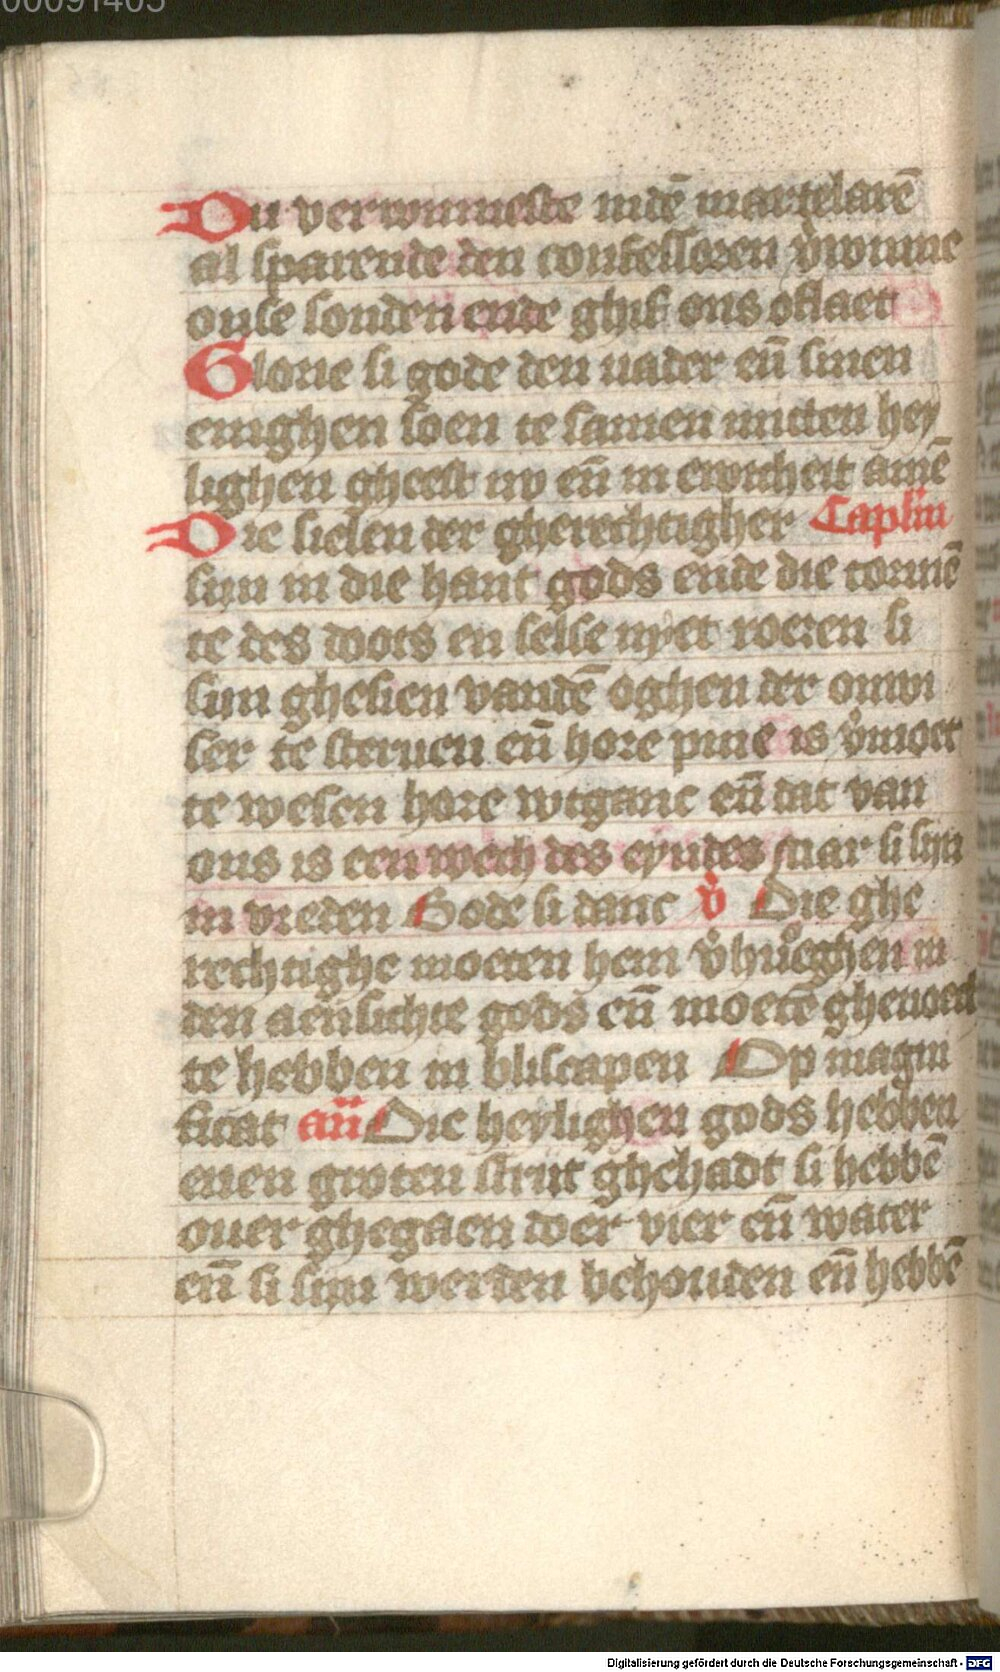 00091405
Du verwinneste indē martelarē
al sparende den confessoren v̕winne
onse sonden ende ghif ons oflaet
Glorie si gode den uader en̄ sinen
enighen soen te samen mitten hey
lighen gheest nv en̄ in ewicheit amē
Die sielen der gherechtigher Capl̄m
sijn in die hant gods ende die tormē
te des doots en selse nyet roeren si
sijn ghesien vandē oghen der onwi
ser te steruen en̄ hore pine is v̕moet
te wesen hore wtganc en̄ dat van
ons is een wech des eyndes mar si sijn
in vreden Gode si danc v̕ Die ghe
rechtighe moeten hem v̕hueghen in
den aensichte gods en̄ moetē gheuoecht
te hebben in bliscapen Op magni
ficat an̄ Die heylighen gods hebben
enen groten strijt ghehadt si hebbē
ouer ghegaen doer vier en̄ water
en̄ si sijn werden behouden en̄ hebbē
Digitalisierung gefördert durch die Deutsche Forschungsgemeinschaft - DFG